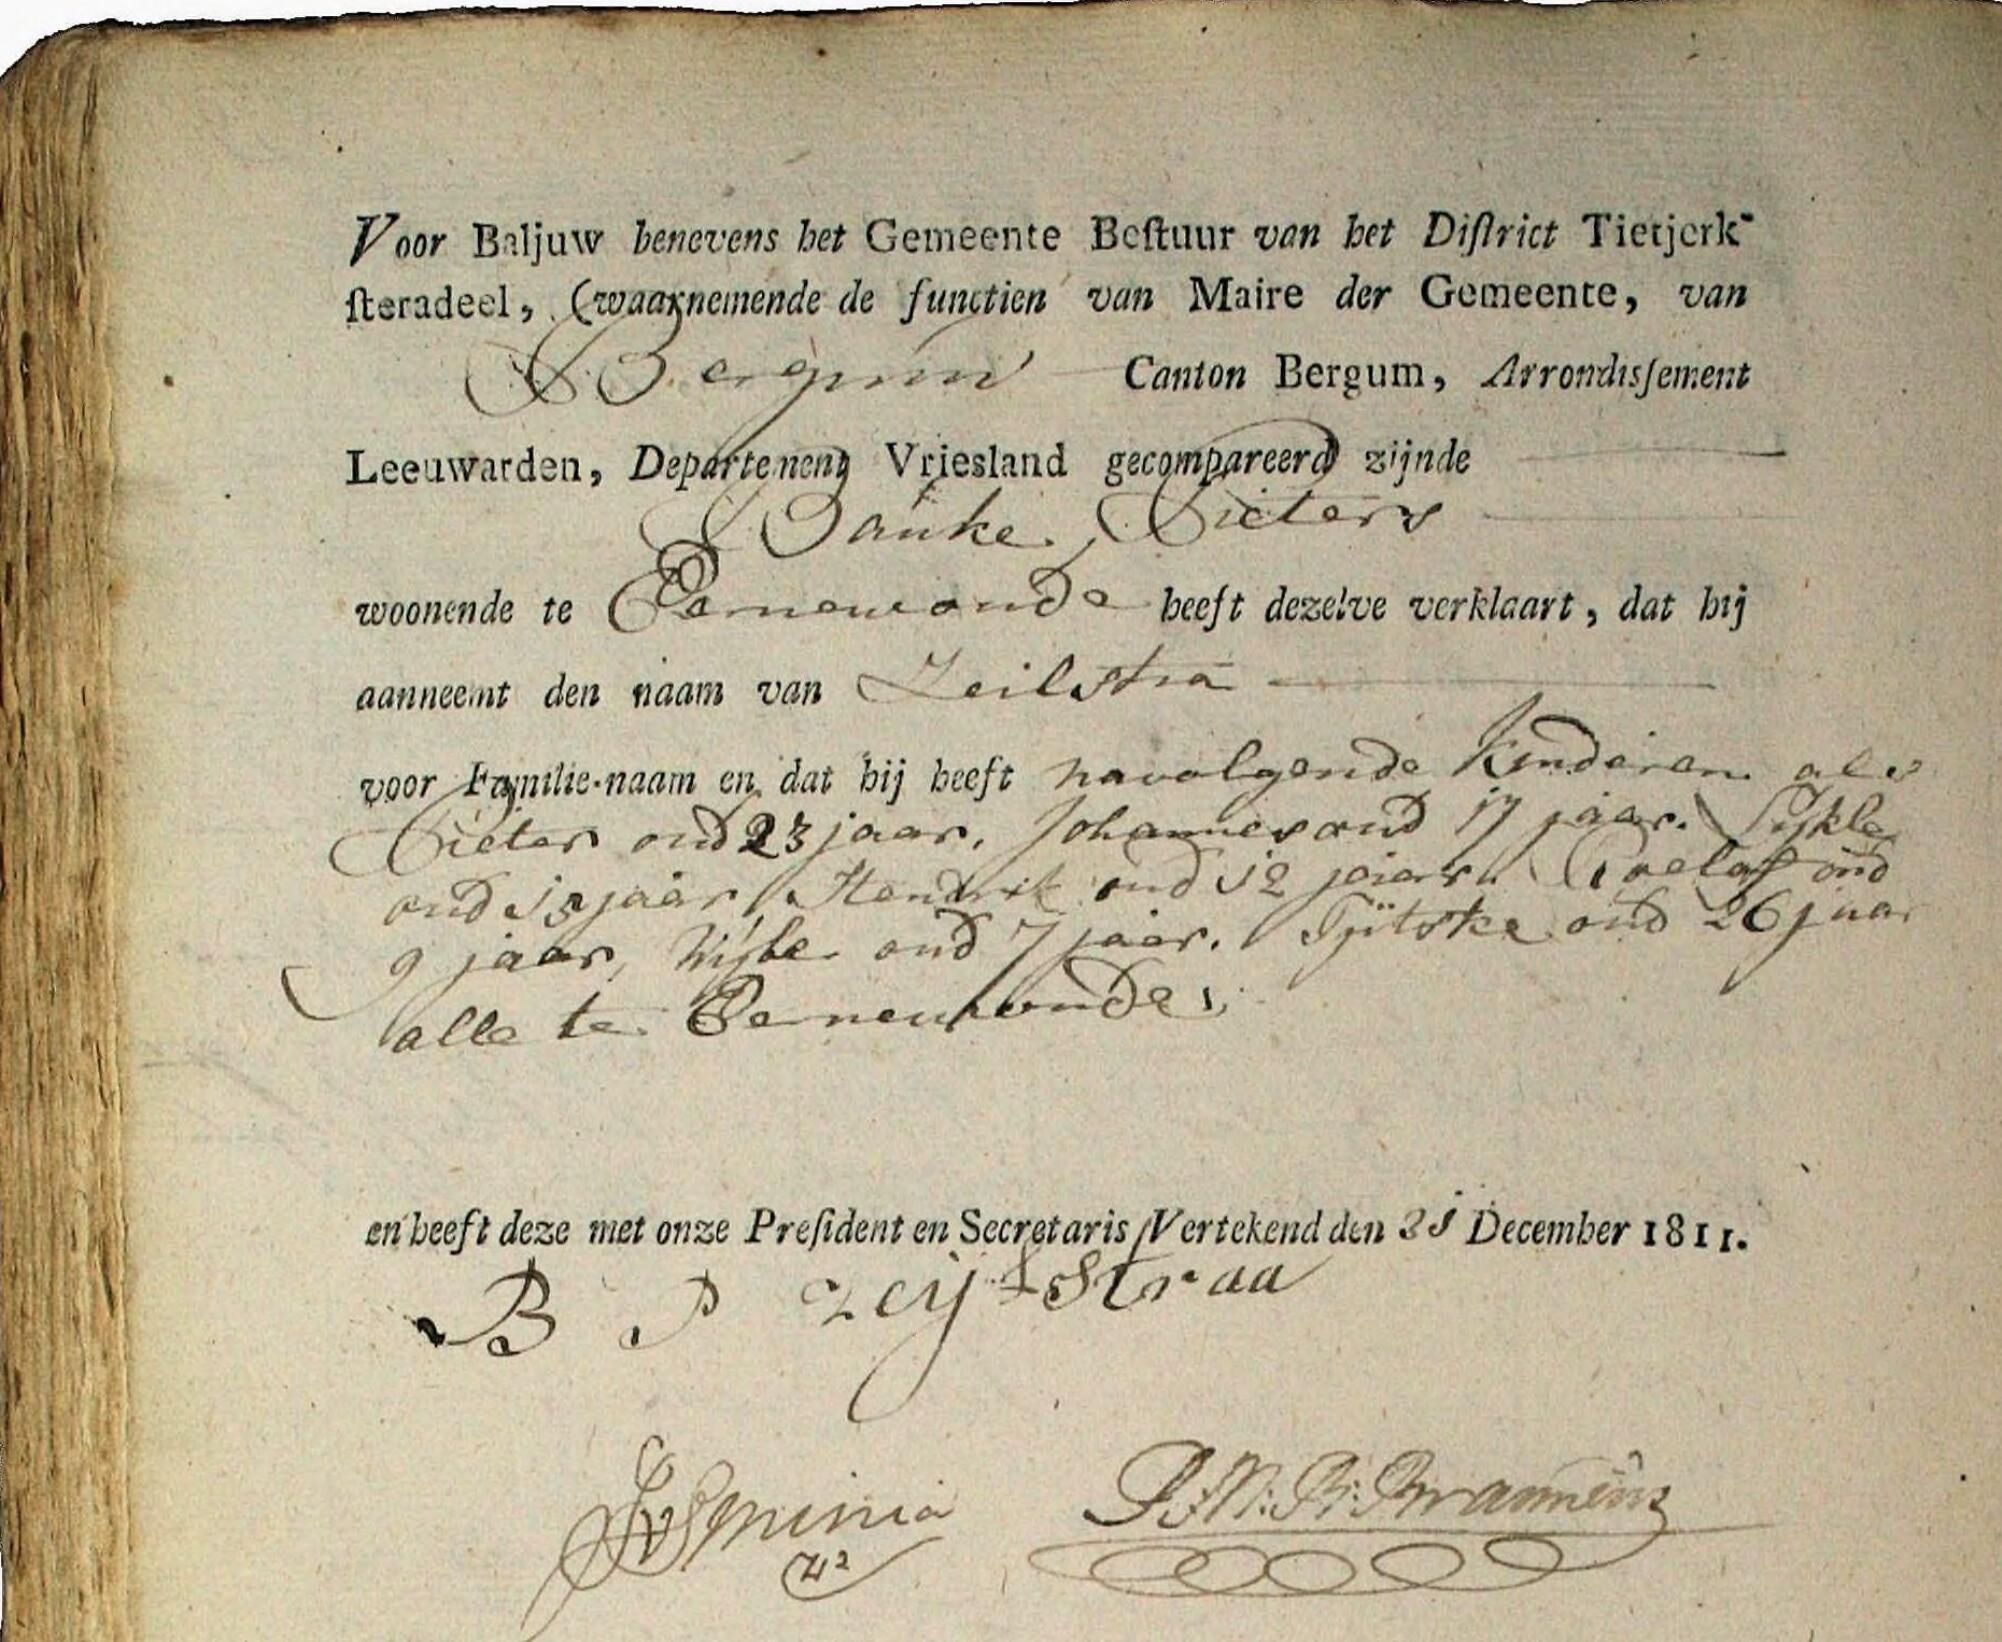 Voor Baljuw benevens het Gemeente Beſtuur van het Diſtrict Tietjerk-
ſteradeel, (waarnemende de functien van Maire der Gemeente, van
Bergum Canton Bergum, Arrondisſement
Leeuwarden, Departement Vriesland gecompareerd zijnde
Bauke Pieters
woonende te Eernewoude heeft dezelve verklaart, dat hij
aanneemt den naam van Zeilstra
voor Familie-naam en dat hij heeft navolgende Kinderen als
Pieter oud 23 jaar, Johannes oud 17 jaar. Sijkle
oud 15 jaar, Hendrik oud 12 jaar. Roelof oud
9 jaar, Wijbe oud 7 jaar. Tjitske oud 26 jaar
alle te Eernewoude
en heeft deze met onze Preſident en Secretaris Vertekend den 31 December 1811.
B P zeijlstraa